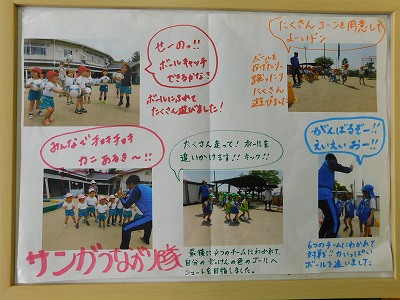 せーのっ!!
ボールキャッチ
できるかな?
ボールにふれて
たくさん遊びました!
たくさんコーンを用意して
よーいドン
ボールを
なげたり、
蹴ったり
たくさん
遊びました!
みんなでチョキチョキ
カニあるき〜!!
たくさん走って!ボールを
追いかけます!!キック!!
がんばるぞー!!
えいえいおー!!
サンガつながり隊
最後に4つのチームにわかれて
自分のチームの色のゴールへ
シュートを目指しました。
6つのチームにわかれて
対戦!!力いっぱい
ボールを追いました